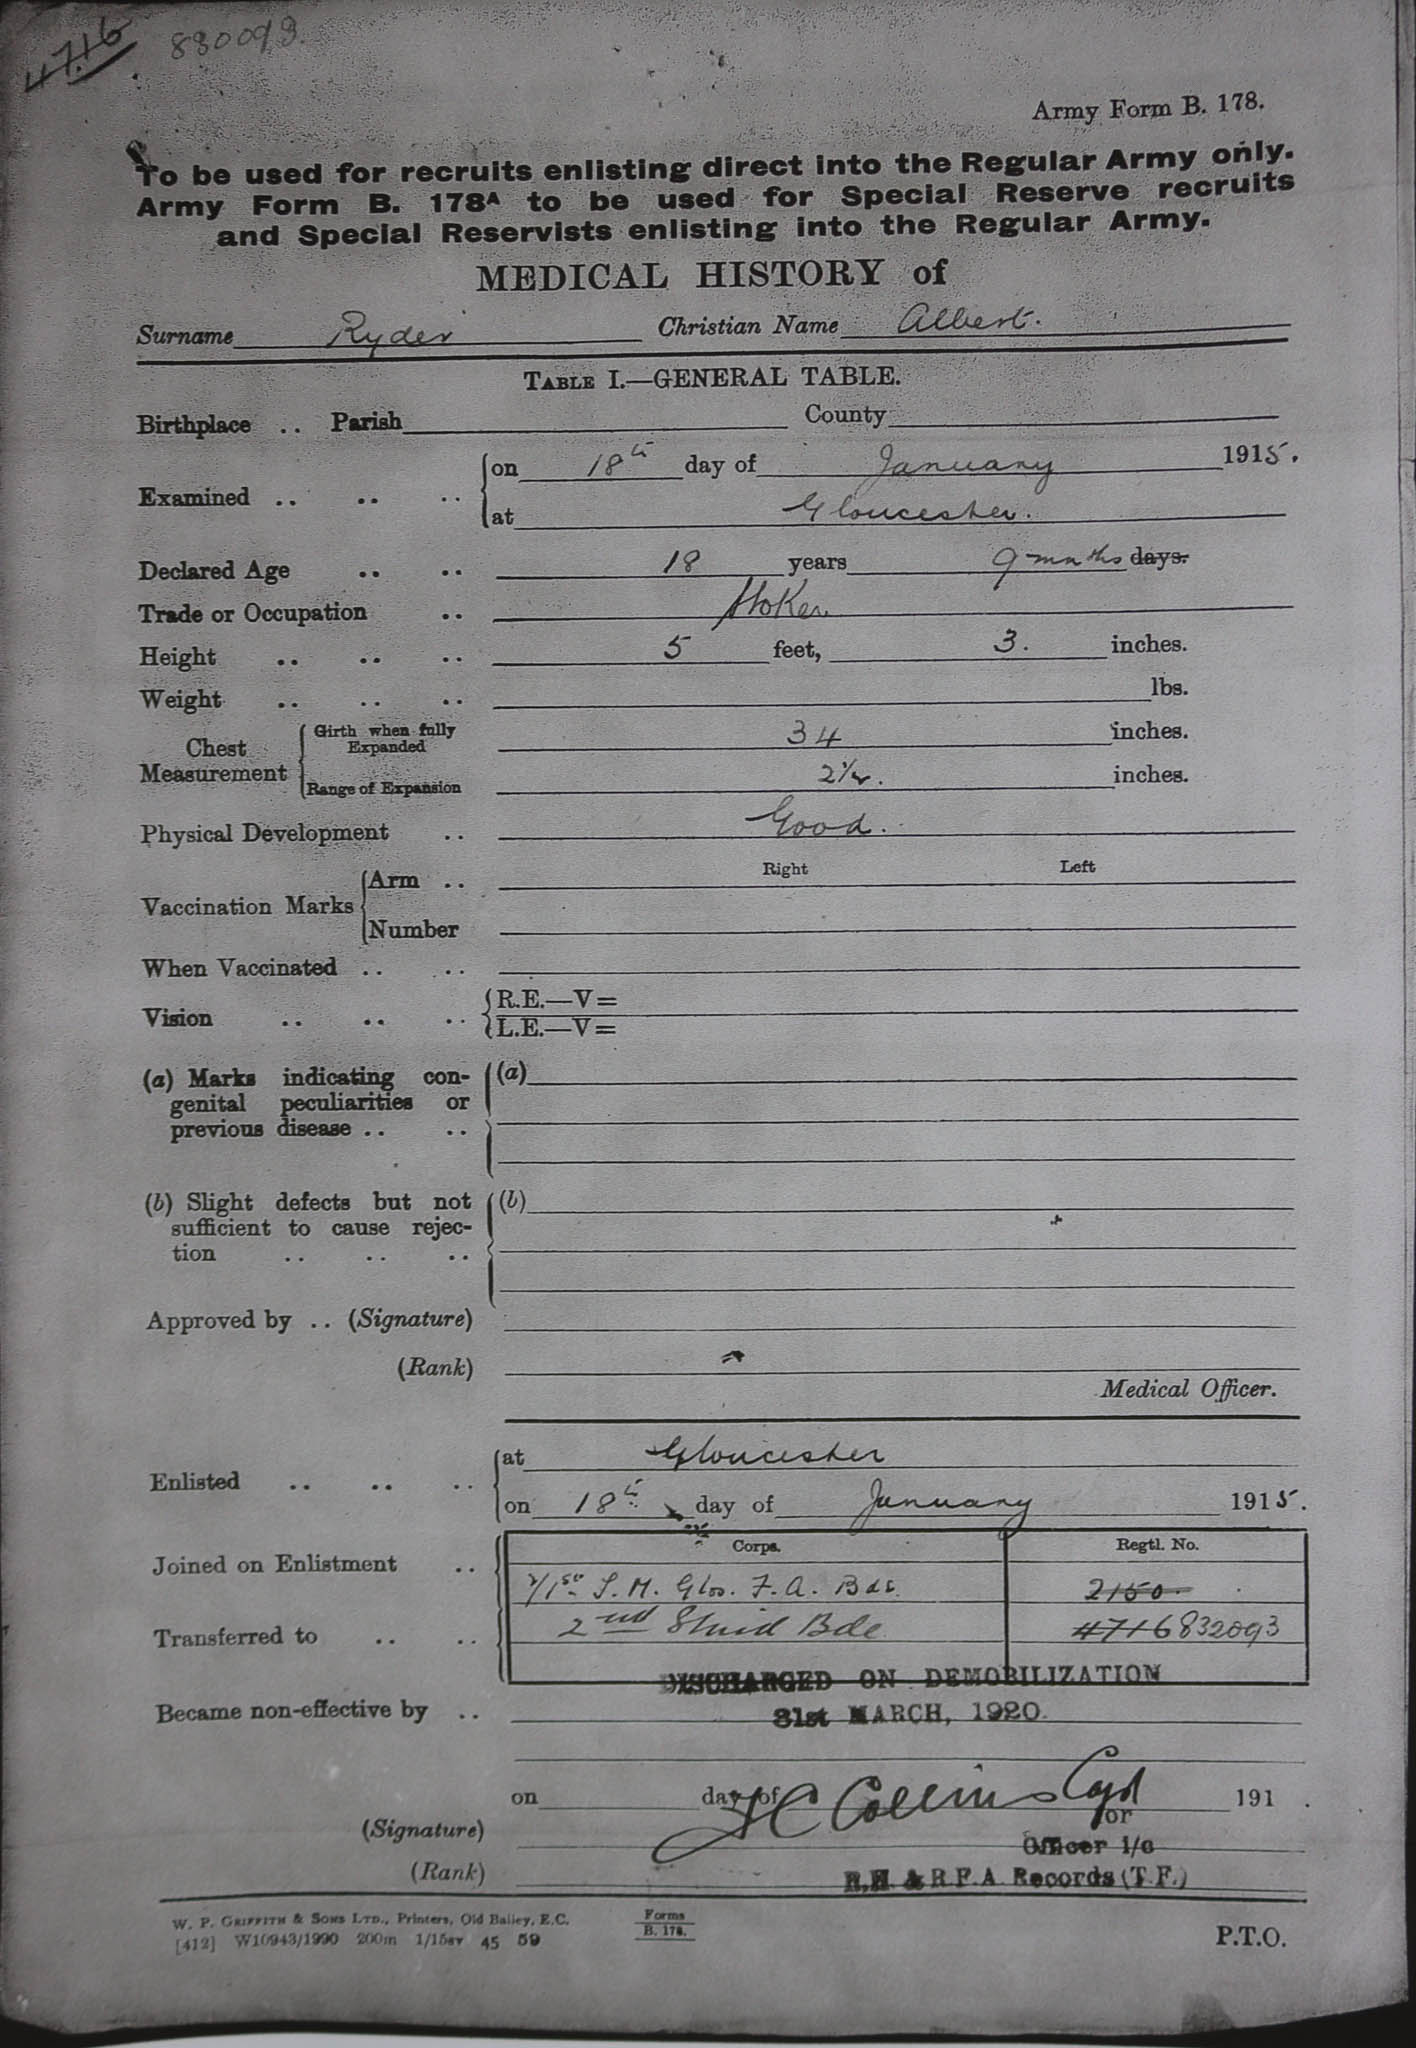 4716 830093.
Army Form B. 178.
To be used for recruits enlisting direct into the Regular Army only.
Army Form B. 178A to be used for Special Reserve recruits
and Special Reservists enlisting into the Regular Army.
MEDICAL HISTORY of
Surname Ryder Christian Name Albert.
TABLE I.—GENERAL TABLE.
Birthplace .. Parish County
on 18th day of January 1915.
Examined .. .. ..
at Gloucester.
Declared Age .. .. 18 years 9 months days.
Trade or Occupation .. Stoker
Height .. .. .. 5 feet, 3. inches.
Weight .. .. .. lbs.
Chest Measurement
Girth when fully Expanded 34 inches.
Range of Expansion 2½. inches.
Physical Development .. Good.
Right Left
Vaccination Marks
Arm ..
Number
When Vaccinated .. ..
Vision .. .. ..
R.E.—V=
L.E.—V=
(a) Marks indicating con- (a)
genital peculiarities or
previous disease .. ..
(b) Slight defects but not (b)
sufficient to cause rejec-
tion .. .. ..
Approved by .. (Signature)
(Rank)
Medical Officer.
at Gloucester
Enlisted .. .. ..
on 18th day of January 1915.
Corps. Regtl. No.
Joined on Enlistment .. 2/1st S. M. Glos. F. A. Bde. 2150
Transferred to .. .. 2nd Bde 4716 832093
DISCHARGED ON DEMOBILIZATION
Became non-effective by .. 31st MARCH, 1920.
on day of 191 .
(Signature) J C Collins Capt
for
Officer i/c
(Rank) R.H & R.F.A Records (T.F.)
W. P. GRIFFITH & SONS LTD., Printers, Old Bailey, E.C. Forms
[412] W10943/1990 200m 1/15sv 45 59 B. 178.
P.T.O.